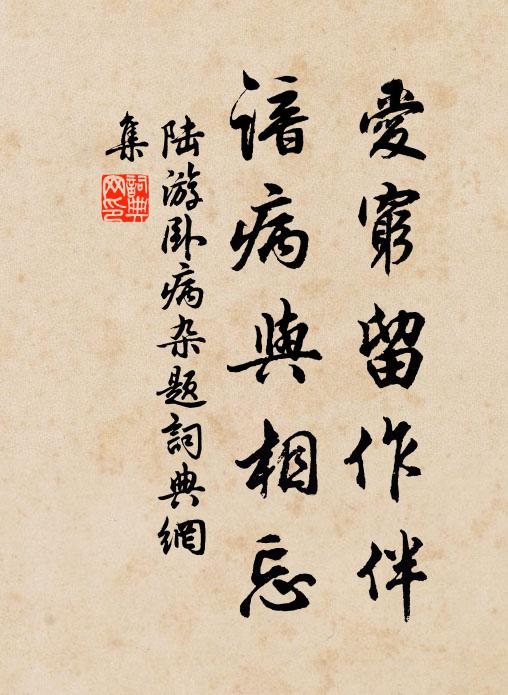 愛窮留作伴
諳病與相忘
陸游卧病杂題詞典網
集
詞典
网印